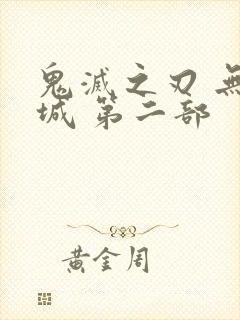 鬼滅之刃 無
城 第二部
黃金周